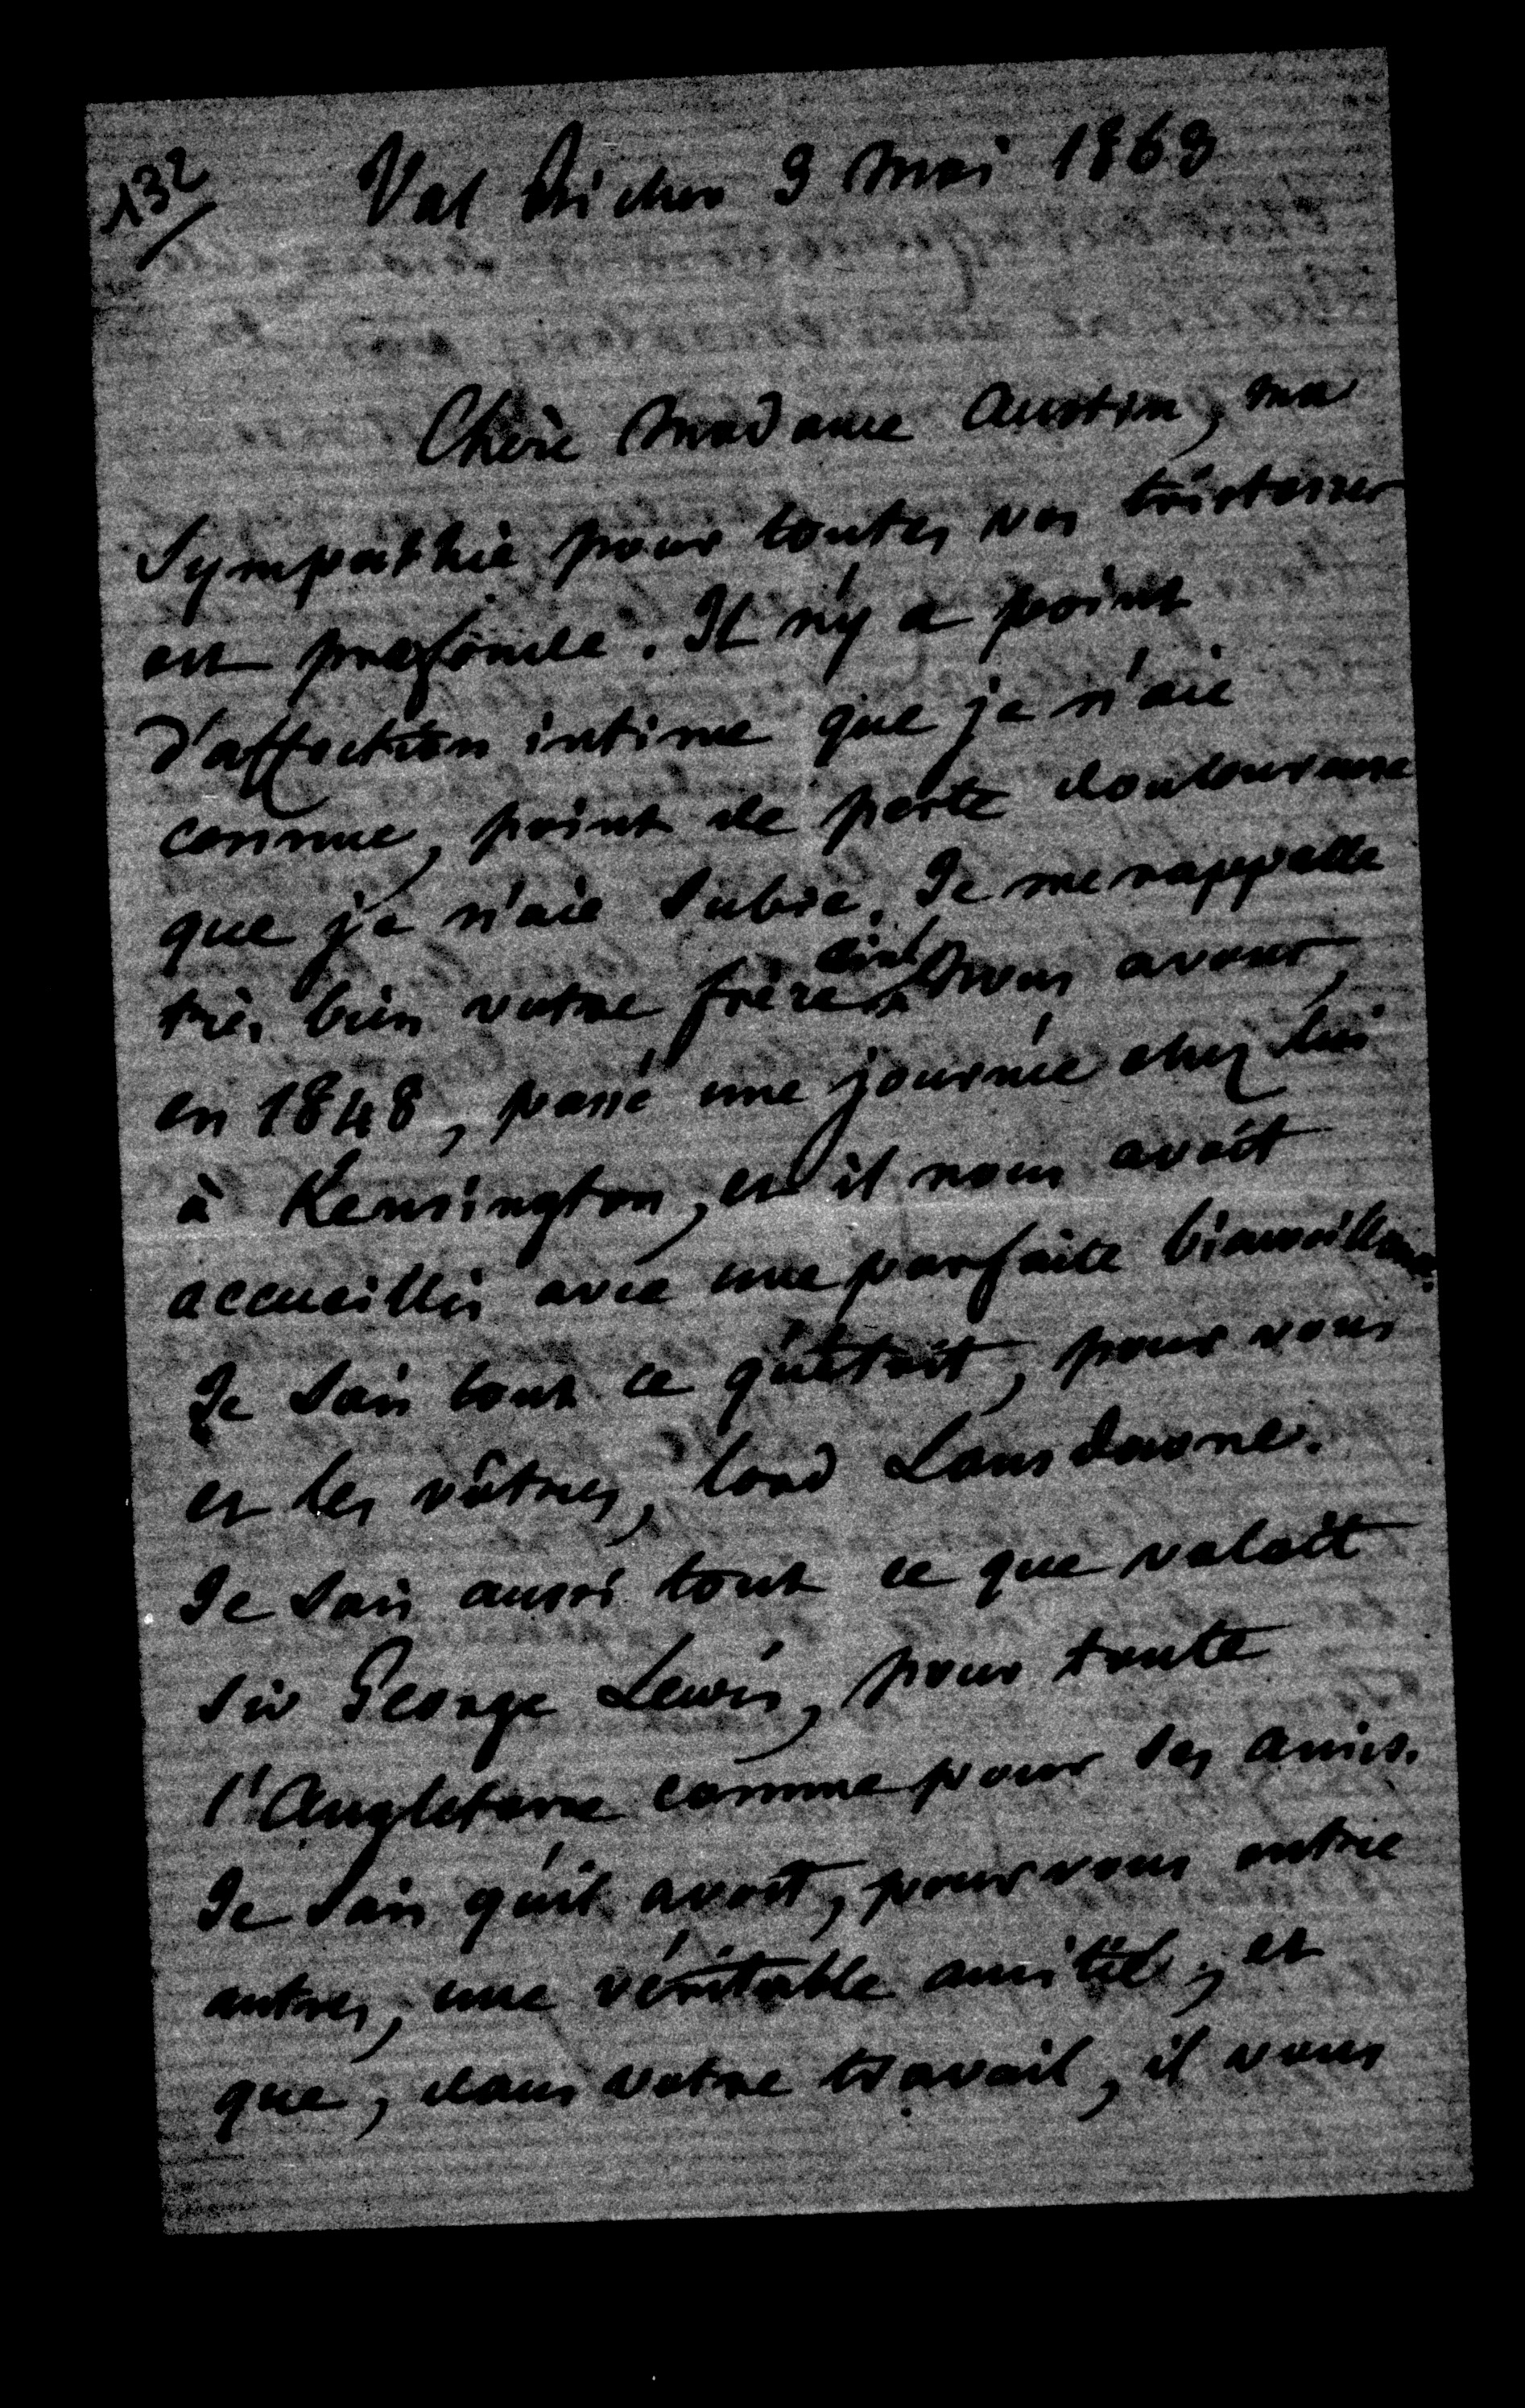 132
Val Richer 9 Mai 1863
Chère Madame Austin, ma
sympathie pour toutes vos tristesses
est profonde. Il n'y a point
d'affection intime que je n'aie
connue, point de perte douloureuse
que je n'aie subie. Je me rappelle
très bien votre frère aîné. Nous avons,
en 1848, passé une journée chez lui
à Kensington, et il nous avait
accueillis avec une parfaite bienveillance.
Je sais tout ce qu'était, pour vous
et les vôtres, lord Lansdowne.
Je sais aussi tout ce que valait
sir George Lewis, pour toute
l'Angleterre comme pour ses amis.
Je sais qu'il avait, pour vous entre
autres, une véritable amitié, et
que, dans votre travail, il vous